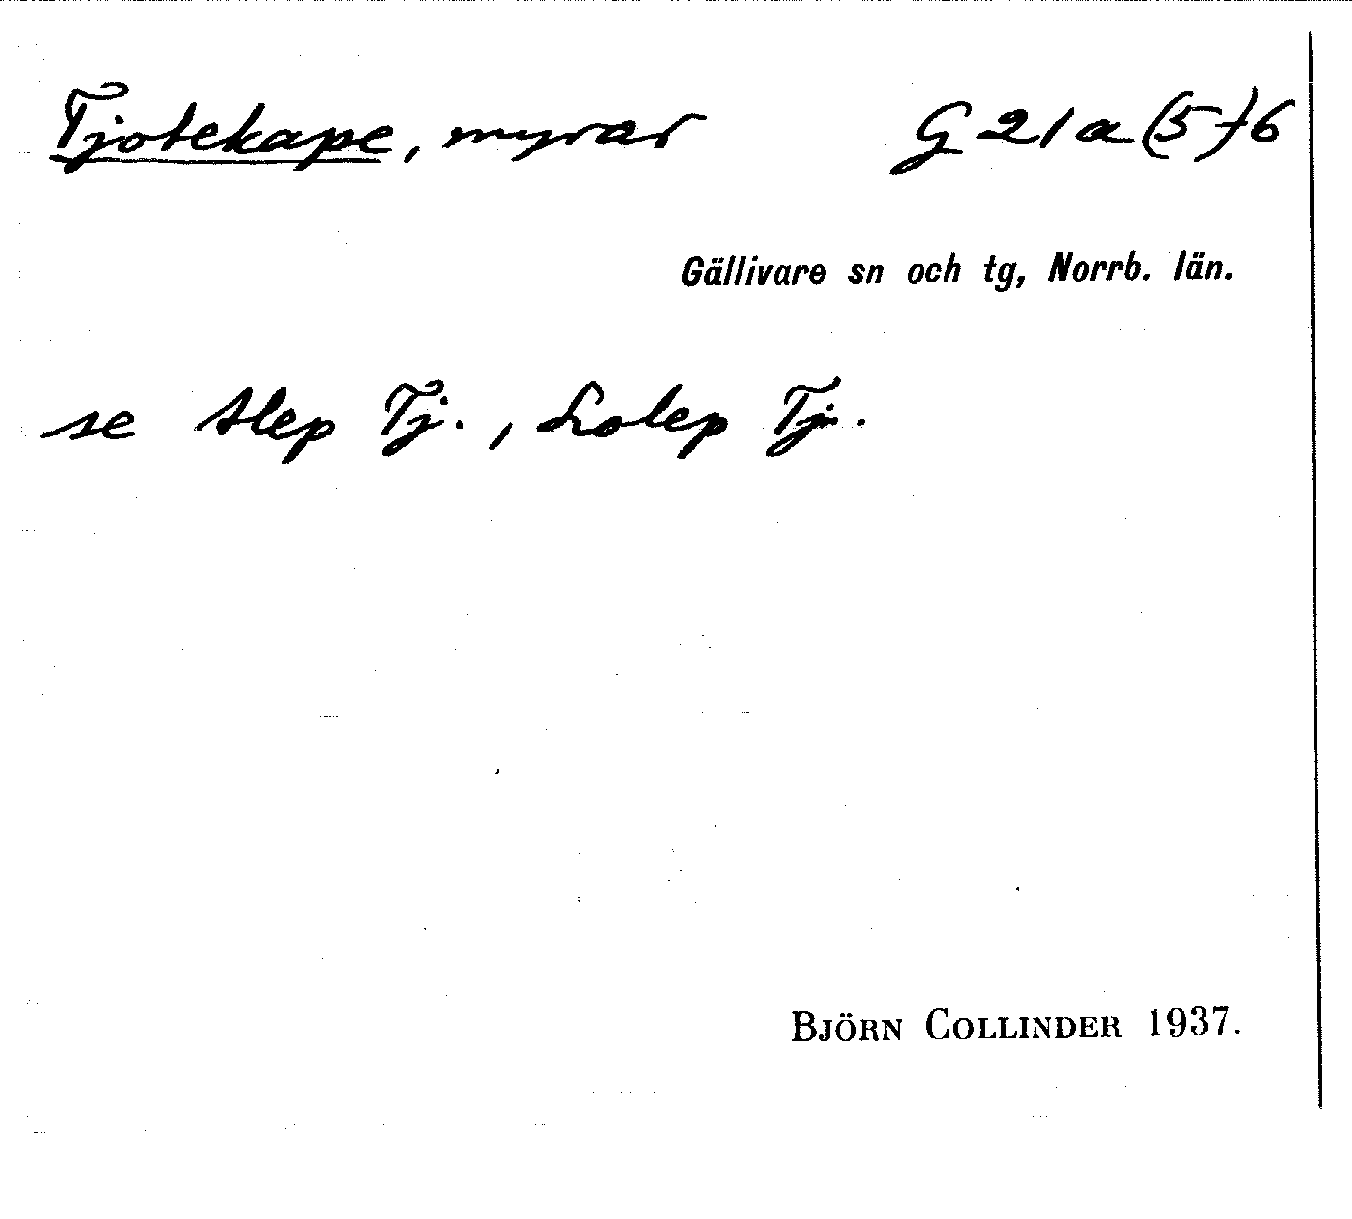 Tjotekape, myrar G 21 a (5-)6
Gällivare sn och tg, Norrb. län.
se Alep Tj., Lolep Tj.
BJÖRN COLLINDER 1937.